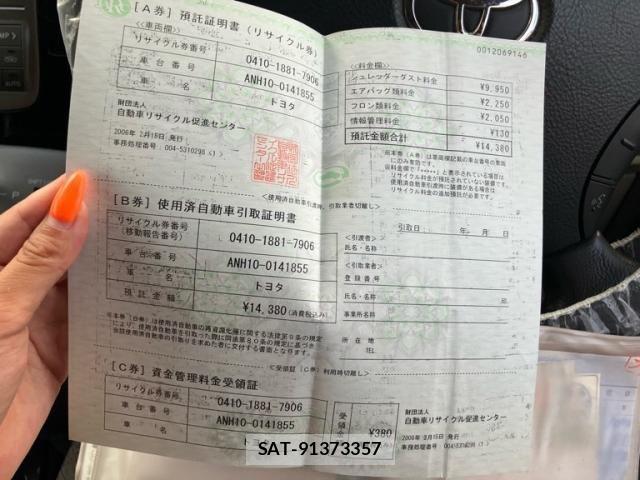 [A券] 預託証明書 (リサイクル券)
0012069146
<<車両欄>>
リサイクル券番号 0410-1881-7906
車台番号 ANH10-0141855
車名 トヨタ
<<料金欄>>
シュレッダーダスト料金 ¥9,950
エアバッグ類料金 ¥2,250
フロン類料金 ¥2,050
情報管理料金 ¥130
預託金額合計 ¥14,380
財団法人
自動車リサイクル促進センター
2006年 2月15日 発行
事務処理番号:004-5310298 (1)
<使用済自動車引渡時、引取業者切離し>
[B券] 使用済自動車引取証明書
引取日: 年 月 日
リサイクル券番号
(移動報告番号) 0410-1881-7906
車台番号 ANH10-0141855
車名 トヨタ
預託金額 ¥14,380 (消費税込み)
<引渡者>
氏名・名称
<引取業者>
登録番号
氏名・名称 印
事業所名称
所在地
TEL
<受領証 (C券) 利用時切離し>
[C券] 資金管理料金受領証
リサイクル券番号 0410-1881-7906
車台番号 ANH10-0141855
車名 トヨタ
受領金 ¥380
財団法人
自動車リサイクル促進センター
2006年 2月15日 発行
SAT-91373357